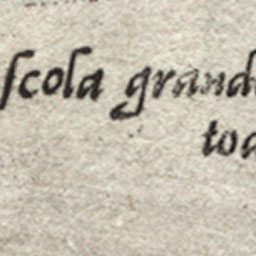 ſcola grand
to